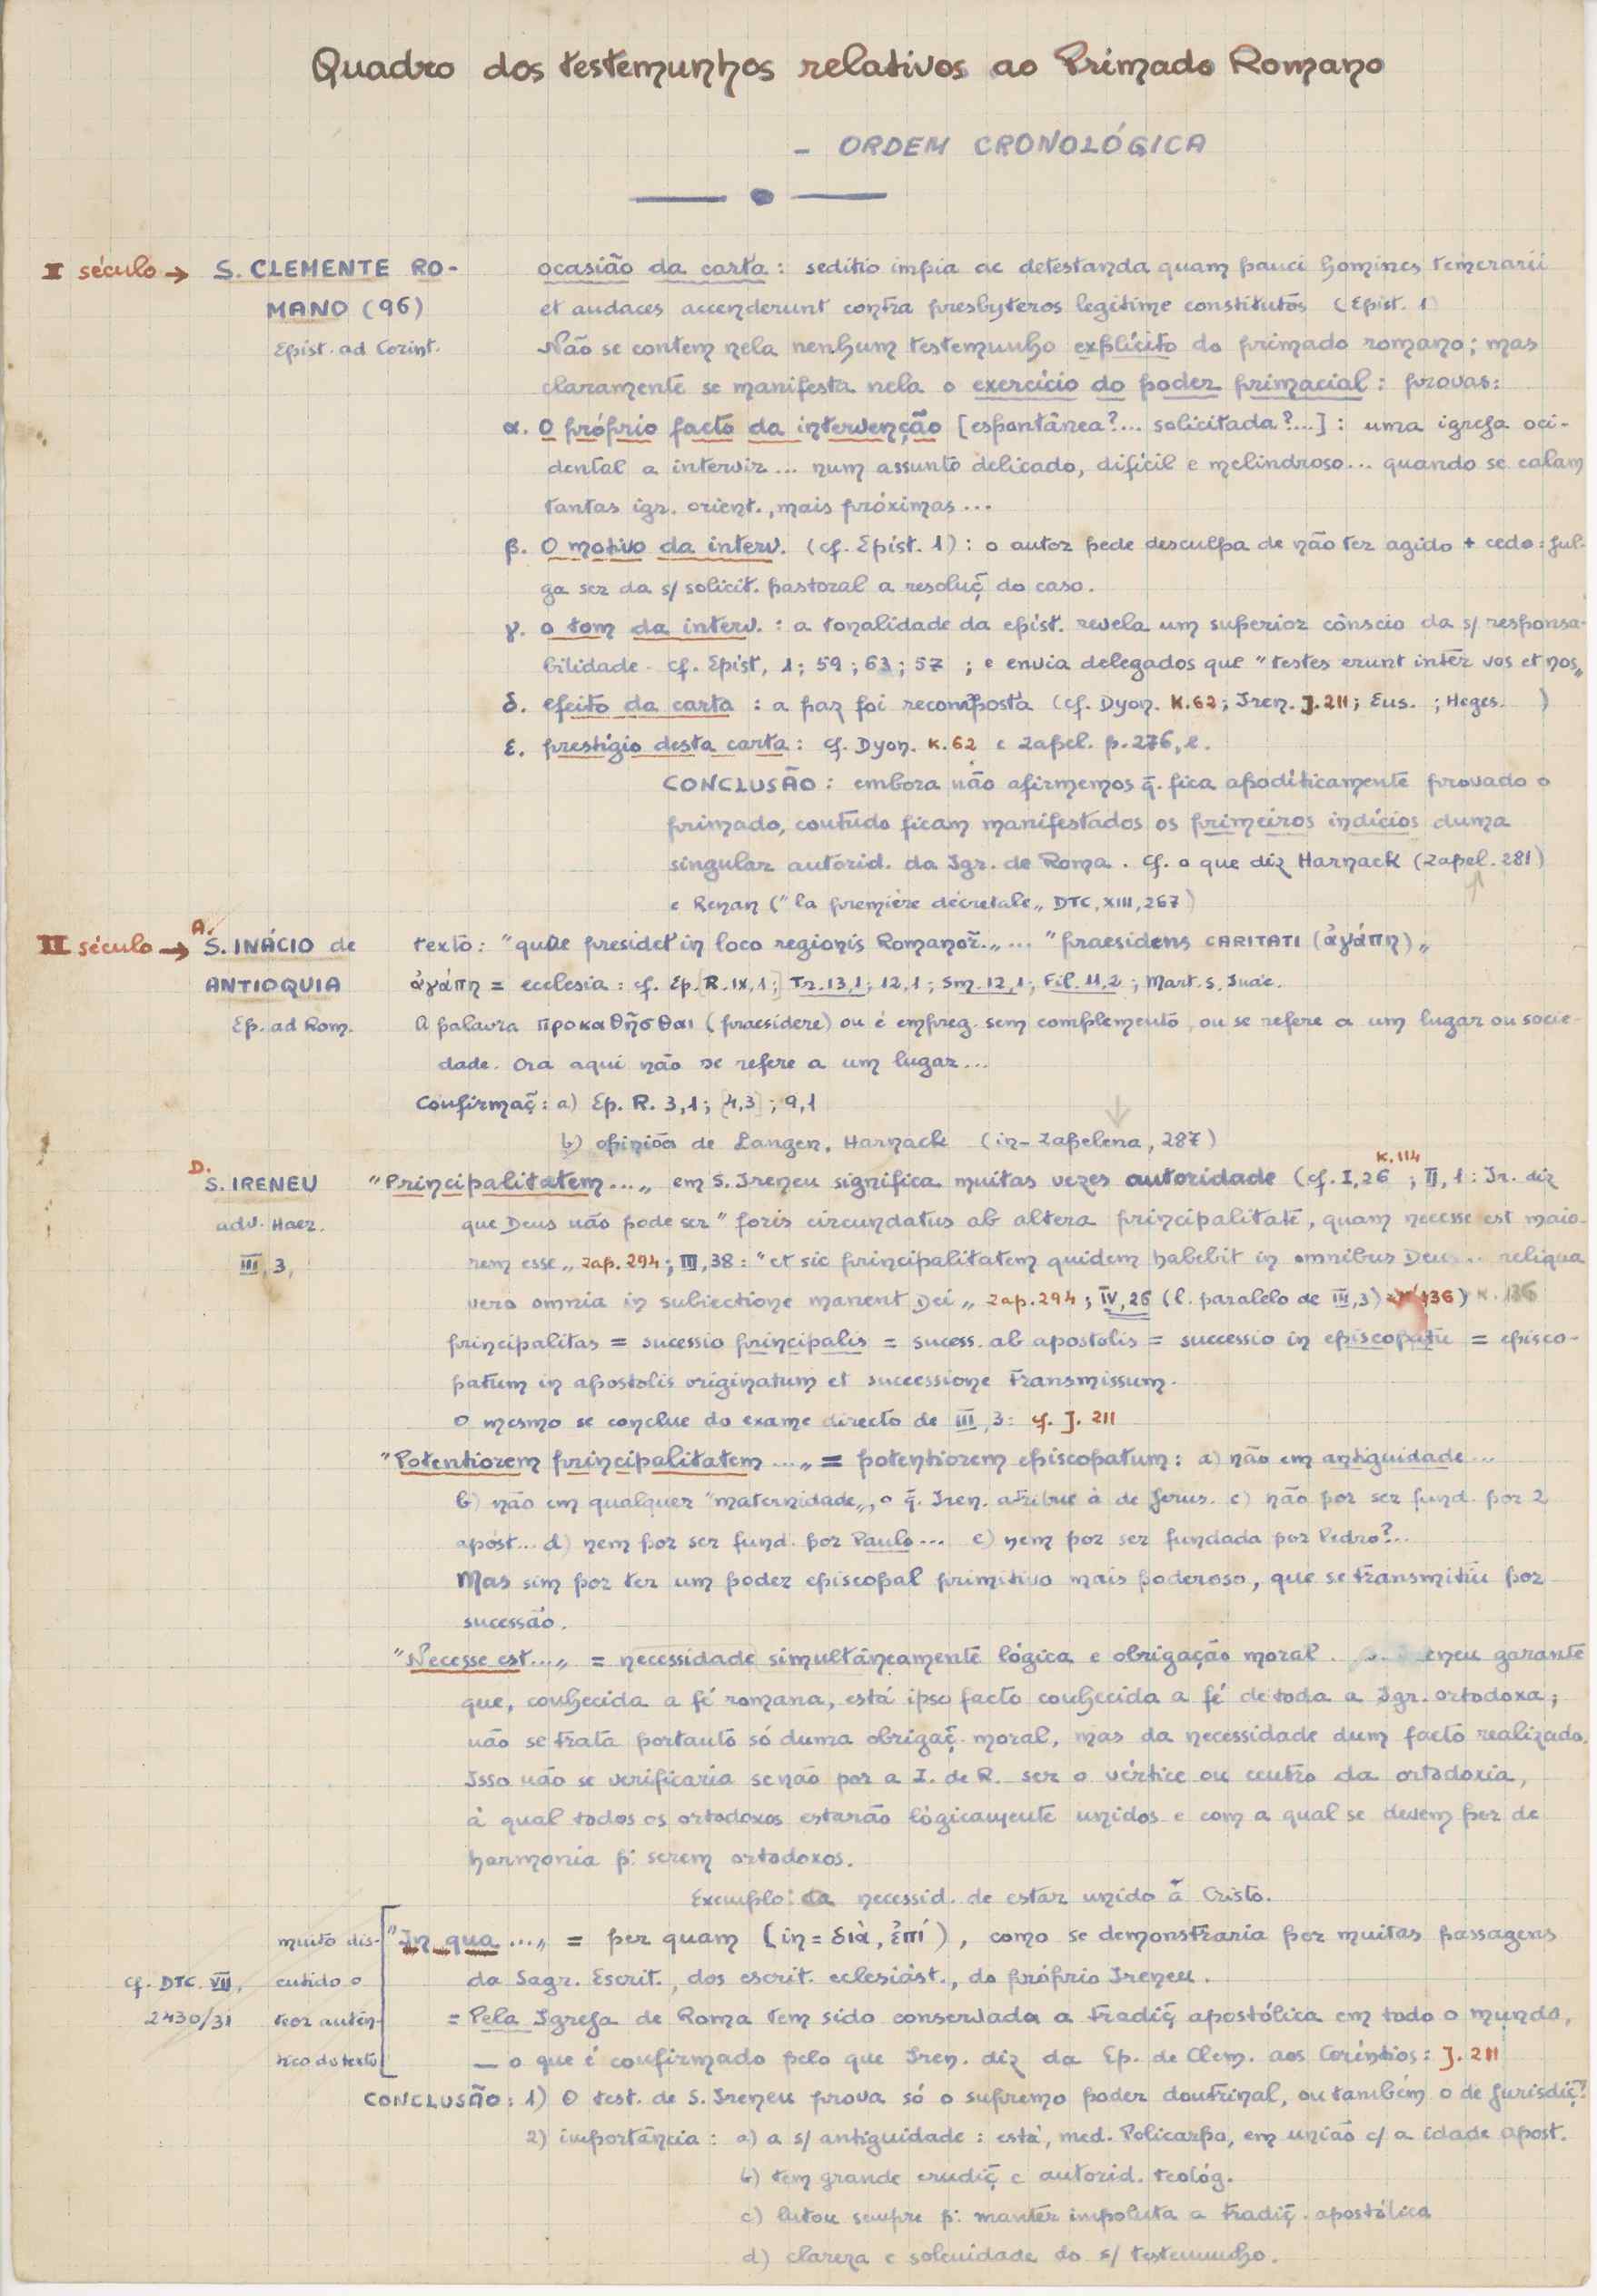 Quadro dos testemunhos relativos ao Primado Romano
– ORDEM CRONOLÓGICA
I século → S. CLEMENTE RO- ocasião da carta : seditio impia ac detestanda quam pauci homines temerarii
MANO (96) et audaces accenderunt contra presbyteros legitime constitutos (Epist. 1)
Epist. ad Corint. Não se contem nela nenhum testemunho explícito do primado romano ; mas
claramente se manifesta nela o exercício do poder primacial : provas :
α. O próprio facto da intervenção [espontânea?... solicitada?...] : uma igreja oci-
dental a intervir ... num assunto delicado, difícil e melindroso... quando se calam
tantas igr. orient., mais próximas ...
β. O motivo da interv. (cf. Epist. 1) : o autor pede desculpa de não ter agido + cedo : jul-
ga ser da s/ solicit. pastoral a resoluç̃ do caso.
γ. o tom da interv. : a tonalidade da epist. revela um superior cônscio da s/ responsa-
bilidade - cf. Epist, 1 ; 59 ; 63 ; 57 ; e envia delegados que "testes erunt inter vos et nos„
δ. efeito da carta : a paz foi recomposta (cf. Dyon. K.62 ; Iren. J.211 ; Eus. ; Heges. )
ε. prestígio desta carta : cf. Dyon. K.62 e Zapel. p.276, l.
CONCLUSÃO : embora não afirmemos q̃. fica apoditicamente provado o
primado, contudo ficam manifestados os primeiros indícios duma
singular autorid. da Igr. de Roma . Cf. o que diz Harnack (Zapel. 281)
e Renan ("la première décretale„ DTC, XIII, 267)
II século → A. S. INÁCIO de texto : "quae presidet in loco regionis Romanor̃.„ ... "praesidens CARITATI (ἀγάπη)„
ANTIOQUIA ἀγάπη = ecclesia : cf. Ep. [R. IX, 1 ;] Tr. 13,1 ; 12,1 ; Sm. 12,1 ; Fil. 11,2 ; Mart. S. Inác.
Ep. ad Rom. A palavra προκαθῆσθαι (praesidere) ou é empreg. sem complemento, ou se refere a um lugar ou socie-
dade. Ora aqui não se refere a um lugar...
Confirmaç̃ : a) Ep. R. 3,1 ; [4,3] ; 9,1
b) opinião de Langen, Harnack (in- Zapelena, 287)
D. K.114
S. IRENEU "Principalitatem...„ em S. Ireneu significa muitas vezes autoridade (cf. I, 26 ; II, 1 : Ir. diz
adv. Haer. que Deus não pode ser "foris circundatus ab altera principalitate, quam necesse est maio-
III, 3, rem esse„ Zap. 294 ; III, 38 : "et sic principalitatem quidem habebit in omnibus Deus... reliqua
vero omnia in subiectione manent Dei„ Zap. 294 ; IV, 26 (l. paralelo de III, 3) 136) K. 136
principalitas = sucessio principalis = sucess. ab apostolis = successio in episcopatu = episco-
patum in apostolis originatum et successione transmissum.
O mesmo se conclue do exame directo de III, 3 : cf. J. 211
"Potentiorem principalitatem ...„ = potentiorem episcopatum : a) não em antiguidade...
b) não em qualquer "maternidade„, o q̃. Iren. atribue à de Jerus. c) não por ser fund. por 2
apost... d) nem por ser fund. por Paulo... e) nem por ser fundada por Pedro?...
Mas sim por ter um poder episcopal primitivo mais poderoso, que se transmitiu por
sucessão.
"Necesse est...„ = necessidade simultâneamente lógica e obrigação moral . S. Ireneu garante
que, conhecida a fé romana, está ipso facto conhecida a fé de toda a Igr. ortodoxa ;
não se trata portanto só duma obrigaç̃. moral, mas da necessidade dum facto realizado.
Isso não se verificaria senão por a I. de R. ser o vértice ou centro da ortodoxia,
à qual todos os ortodoxos estarão lógicamente unidos e com a qual se devem por de
harmonia p: serem ortodoxos.
Exemplo : da necessid. de estar unido a Cristo.
muito dis- "In qua ...„ = per quam (in = διὰ, ἐπί) , como se demonstraria por muitas passagens
cf. DTC. VII, cutido o da Sagr. Escrit., dos escrit. eclesiást., do próprio Ireneu.
2430/31 teor autên- = Pela Igreja de Roma tem sido conservada a tradiç̃ apostólica em todo o mundo,
tico do texto — o que é confirmado pelo que Iren. diz da Ep. de Clem. aos Coríntios : J. 211
CONCLUSÃO : 1) O test. de S. Ireneu prova só o supremo poder doutrinal, ou também o de jurisdiç̃?
2) importância : a) a s/ antiguidade : está, med. Policarpo, em união c/ a idade apost.
b) tem grande erudiç̃ e autorid. teológ.
c) lutou sempre p: manter impoluta a tradiç̃. apostólica
d) clareza e solenidade do s/ testemunho.